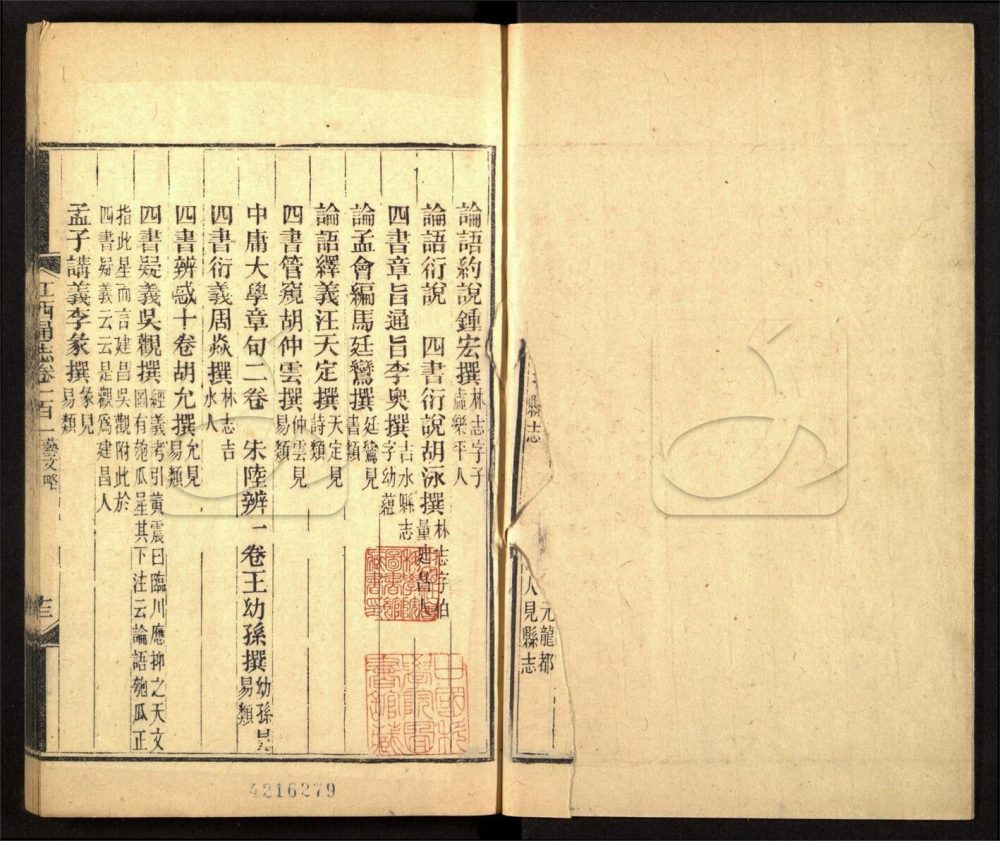 論語約說鍾宏撰林志字子虛樂平人
論語衍說　四書衍說胡泳撰林志字伯量建昌人
四書章旨通旨李奧撰古水縣志字幼蘊
論孟會編馬廷鸞撰廷鸞見書類
論語繹義汪天定撰天定見詩類
四書管窺胡仲雲撰仲雲見易類
中庸大學章句二卷　朱陸辨一卷王幼孫撰幼孫見易類
四書衍義周焱撰林志吉水人
四書辨惑十卷胡允撰允見易類
四書疑義吳觀撰經義考引黃震曰臨川應抑之天文圖有匏瓜星其下注云論語匏瓜正
指此星而言建昌吳觀附此於四書疑義云云是觀爲建昌人
孟子講義李彖撰彖見易類
江西通志卷一百一 藝文略
十三
縣志
元龍都
人見縣志
中國科學院圖書館藏
4216279